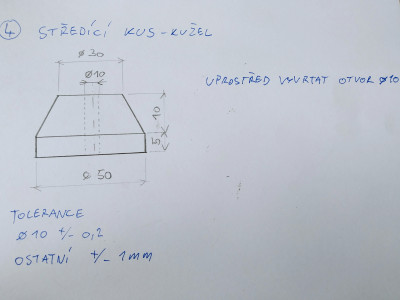 4 STŘEDÍCÍ KUS - KUŽEL
ø 30
ø10
UPROSTŘED VYVRTAT OTVOR ø10
10
5
ø 50
TOLERANCE
ø 10 +/- 0,2
OSTATNÍ +/- 1mm